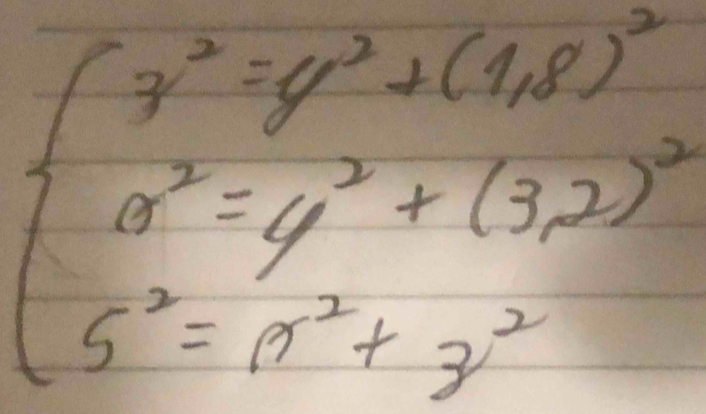 z² = y² + (1,8)²
x² = y² + (3,2)²
5² = x² + z²